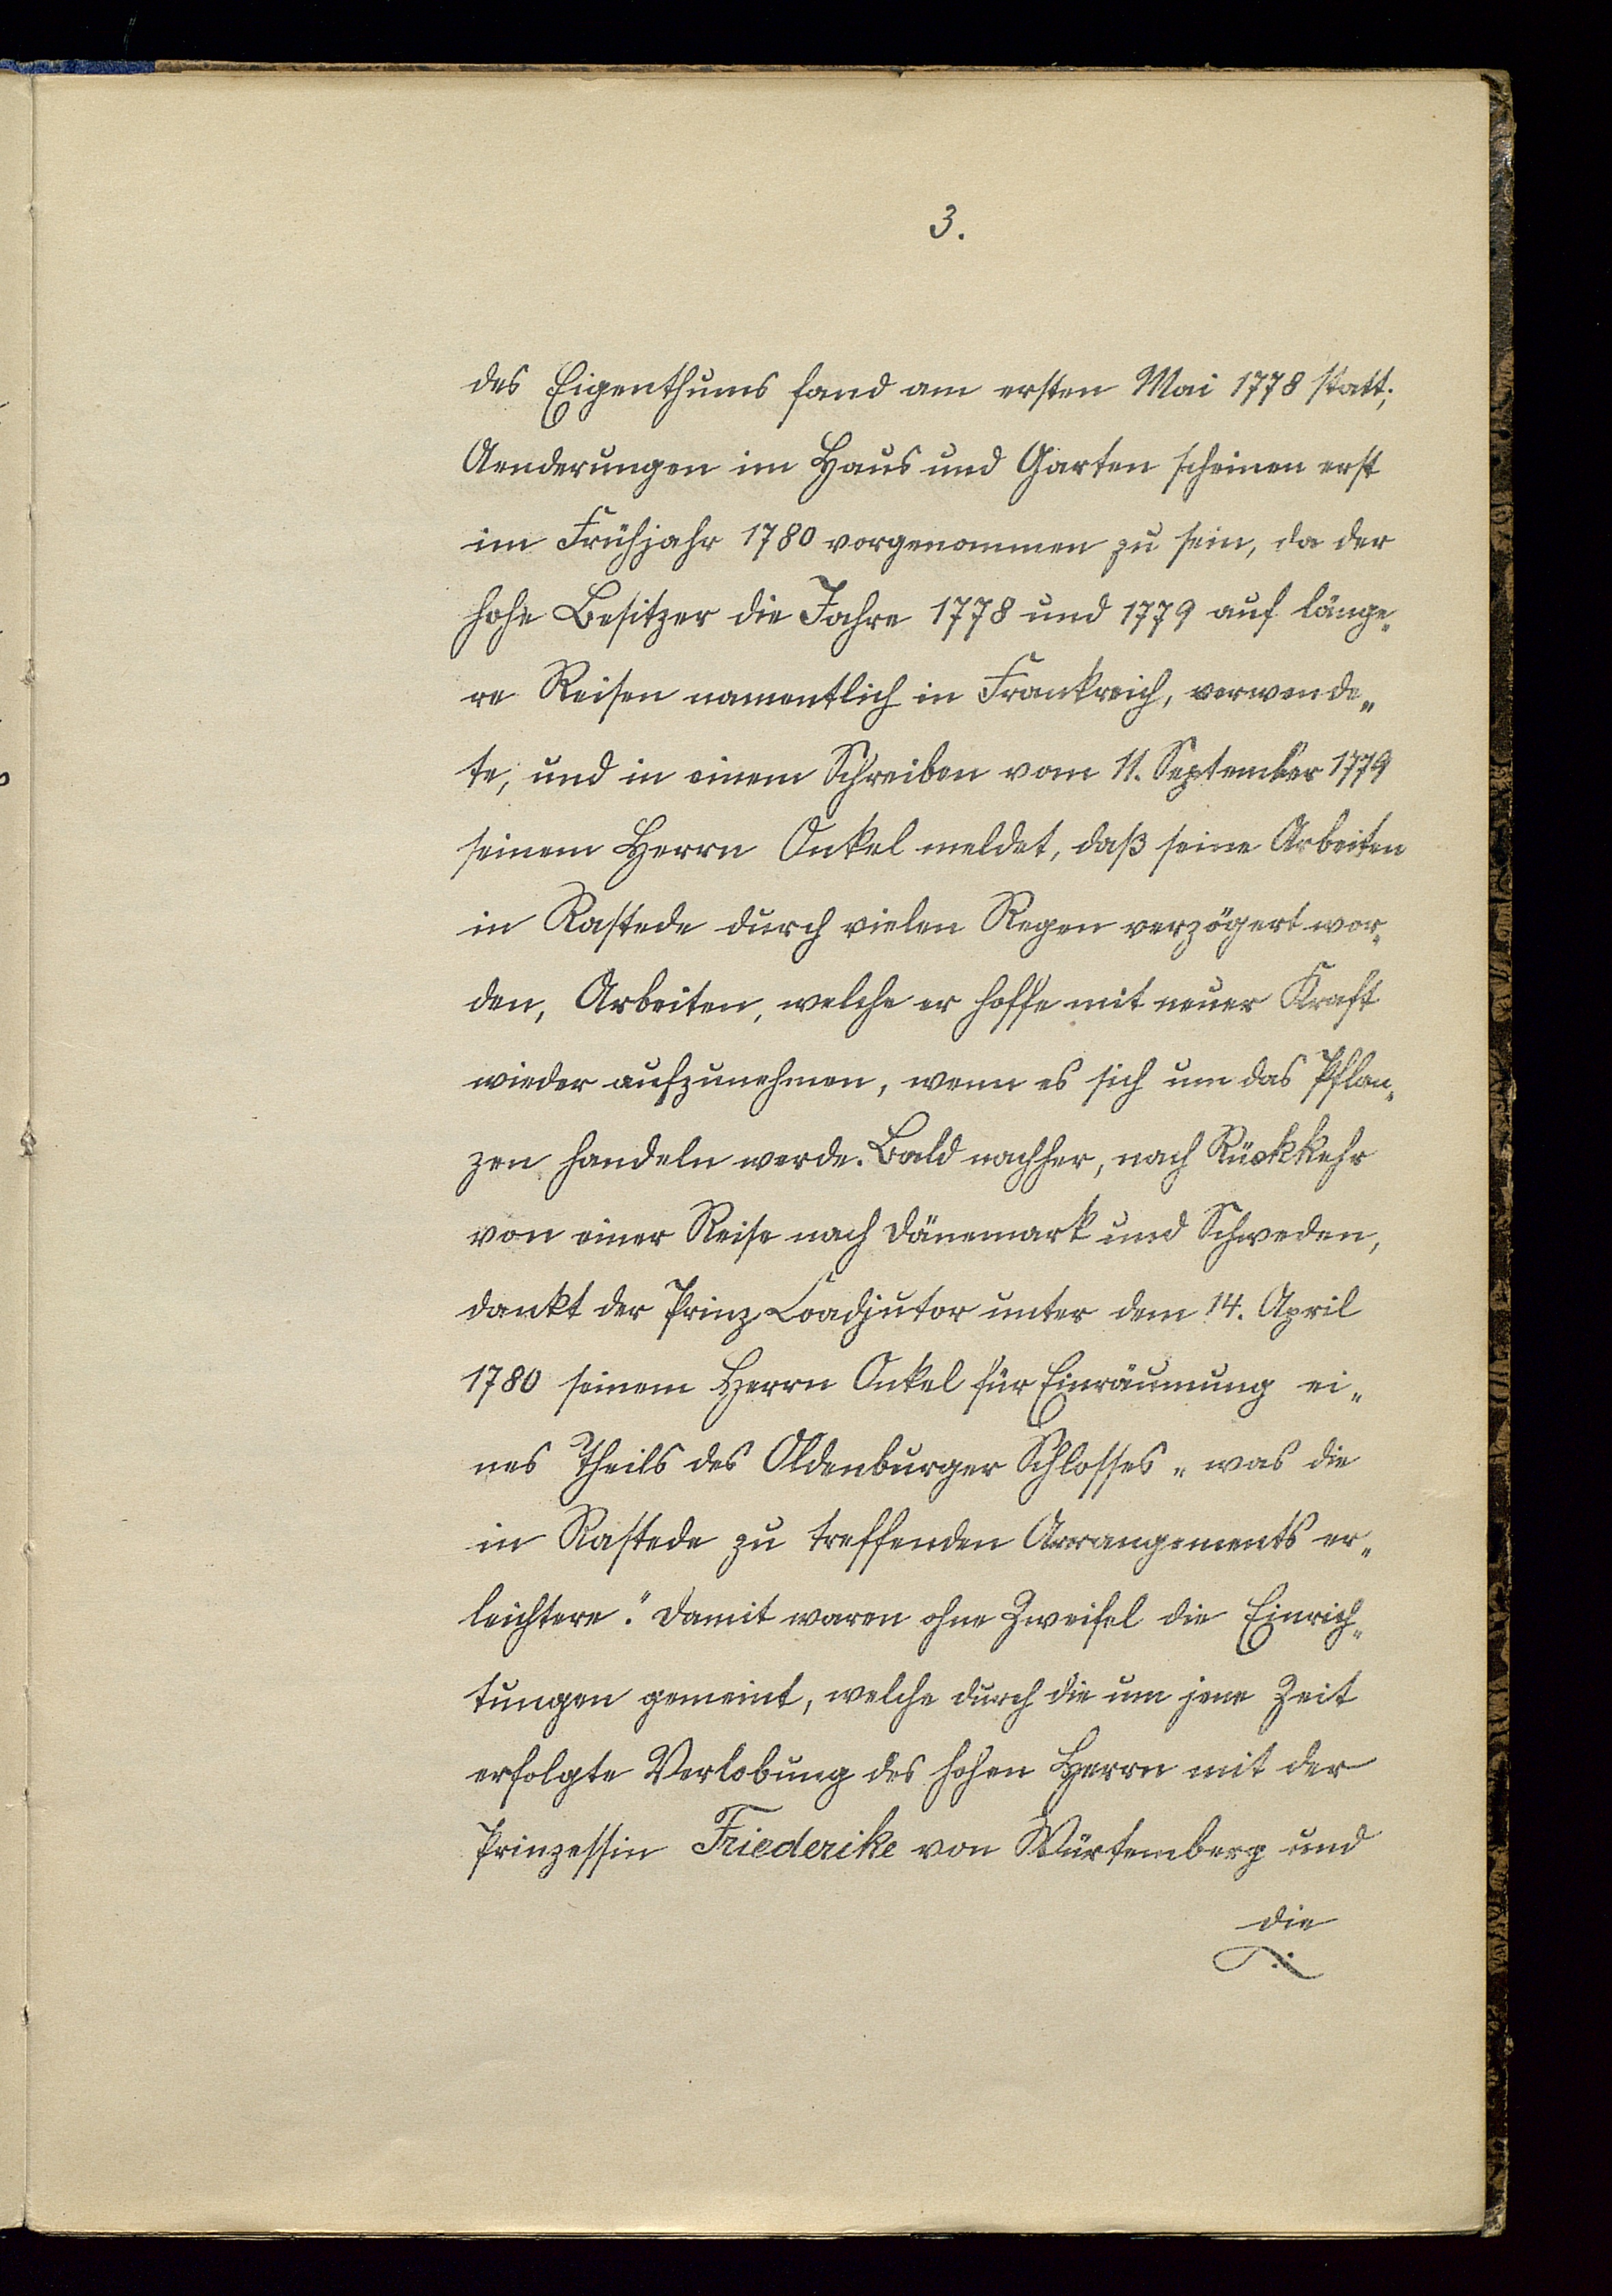 3.
des Eigenthums fand am ersten Mai 1778 statt;
Aenderungen im Haus und Garten scheinen erst
im Frühjahr 1780 vorgenommen zu sein, da der
hohe Besitzer die Jahre 1778 und 1779 auf länge-
re Reisen namentlich in Frankreich, verwende-
te, und in einem Schreiben vom 11. September 1779
seinem Herrn Onkel meldet, daß seine Arbeiten
in Rastede durch vielen Regen verzögert wor-
den, Arbeiten, welche er hoffe mit neuer Kraft
wieder aufzunehmen, wenn es sich um das Pflan-
zen handeln werde. Bald nachher, nach Rückkehr
von einer Reise nach Dänemark und Schweden,
dankt der Prinz Coadjutor unter dem 14. April
1780 seinem Herrn Onkel für Einräumung ei-
nes Theils des Oldenburger Schlosses „was die
in Rastede zu treffenden Arrangements er-
leichtere." Damit waren ohne Zweifel die Einrich-
tungen gemeint, welche durch die um jene Zeit
erfolgte Verlobung des hohen Herrn mit der
Prinzessin Friederike von Würtemberg und
die